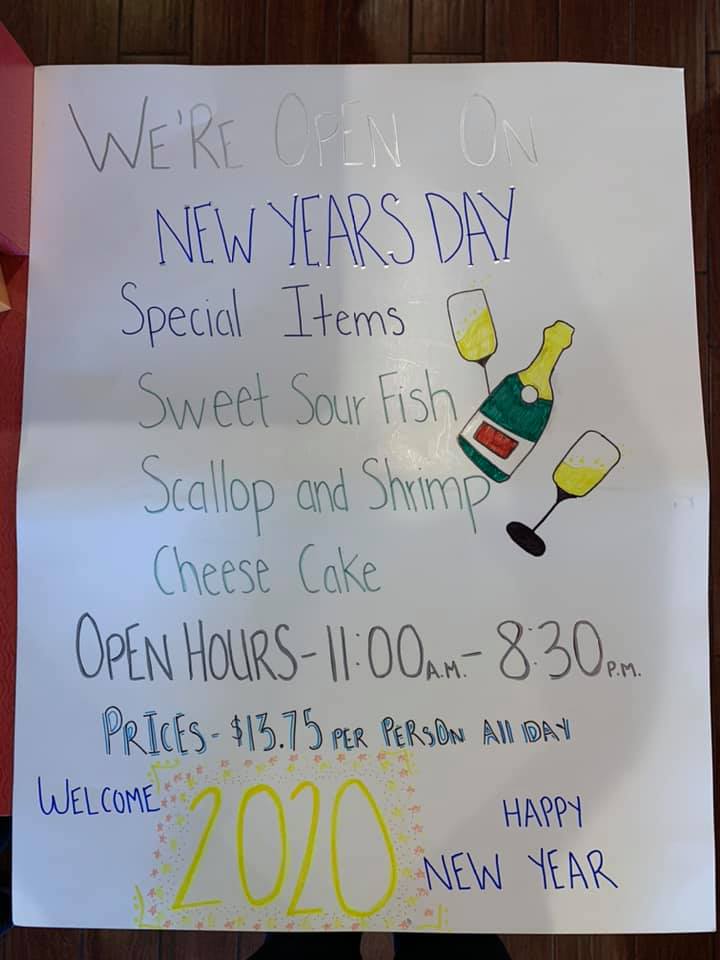 WE'RE OPEN ON
NEW YEARS DAY
Special Items
Sweet Sour Fish
Scallop and Shrimp
Cheese Cake
OPEN HOURS-11:00 A.M.-8:30 P.M.
PRICES-$13.75 PER PERSON All DAY
WELCOME 2020 HAPPY
NEW YEAR